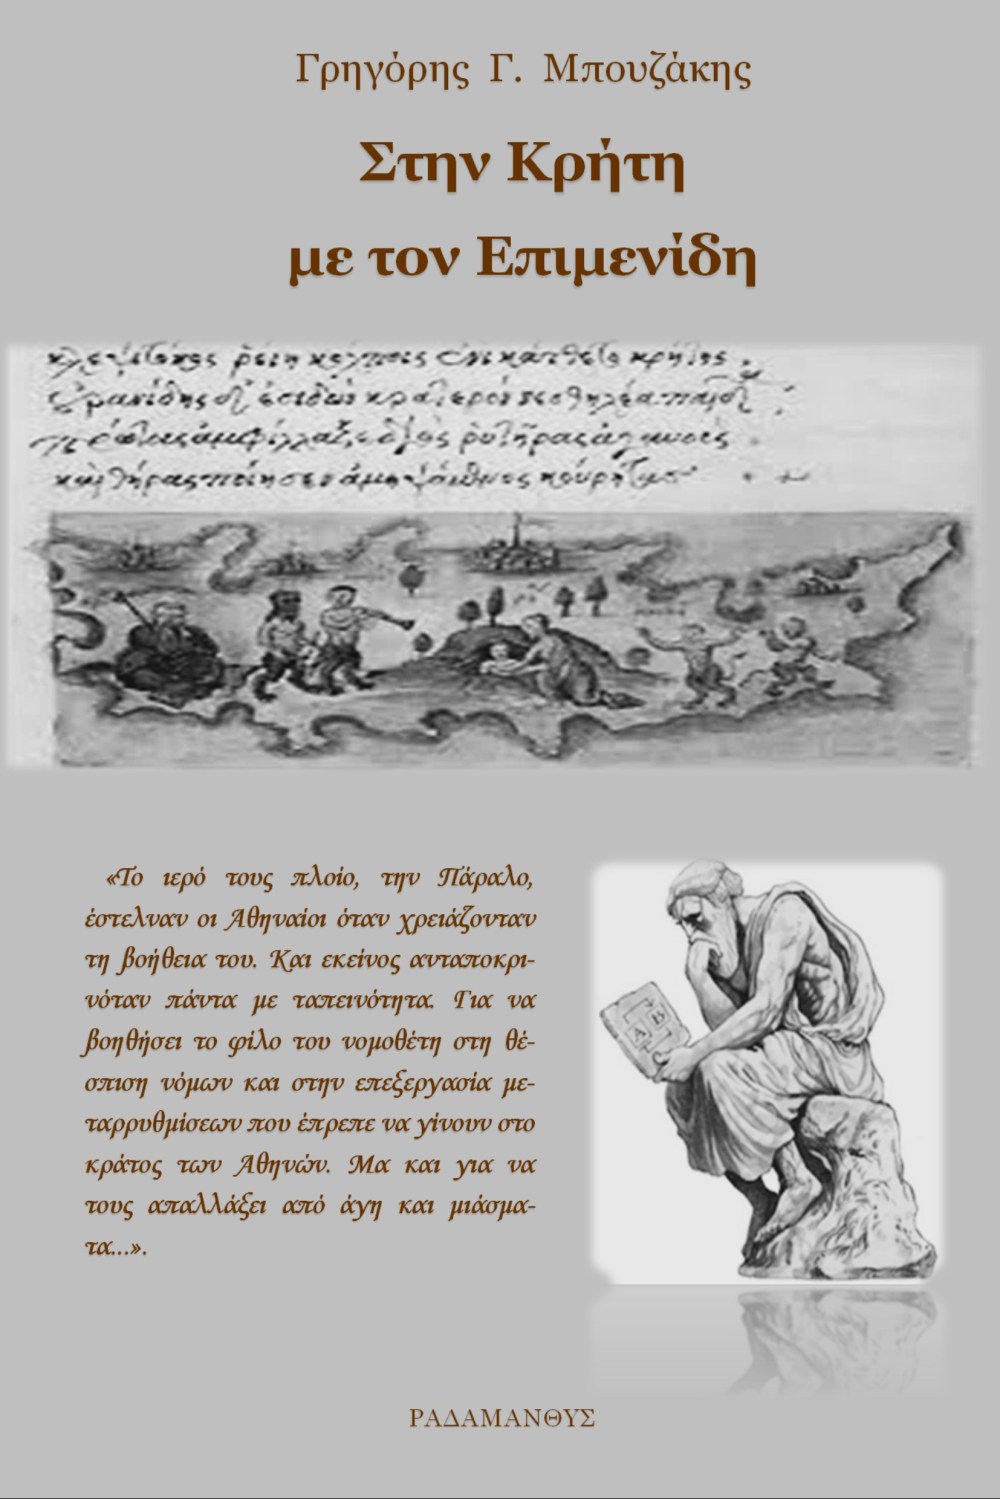 Γρηγόρης Γ. Μπουζάκης
Στην Κρήτη
με τον Επιμενίδη
«Το ιερό τους πλοίο, την Πάραλο,
έστελναν οι Αθηναίοι όταν χρειάζονταν
τη βοήθεια του. Και εκείνος ανταποκρι-
νόταν πάντα με ταπεινότητα. Για να
βοηθήσει το φίλο του νομοθέτη στη θέ-
σπιση νόμων και στην επεξεργασία με-
ταρρυθμίσεων που έπρεπε να γίνουν στο
κράτος των Αθηνών. Μα και για να
τους απαλλάξει από άγη και μιάσμα-
τα...».
Α Β
Γ
ΡΑΔΑΜΑΝΘΥΣ